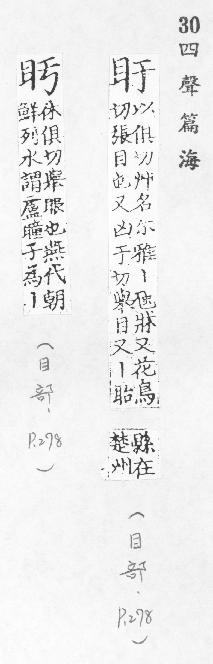 30 四聲篇海
盱
以俱切艸名尔雅丨虺牀又花鳥
切張目也又凶于切舉目又丨眙
縣在
楚州
(目部、P.278)
休俱切舉眼也燕代朝
鮮列水謂盧瞳子為丨
(目部、P.278)